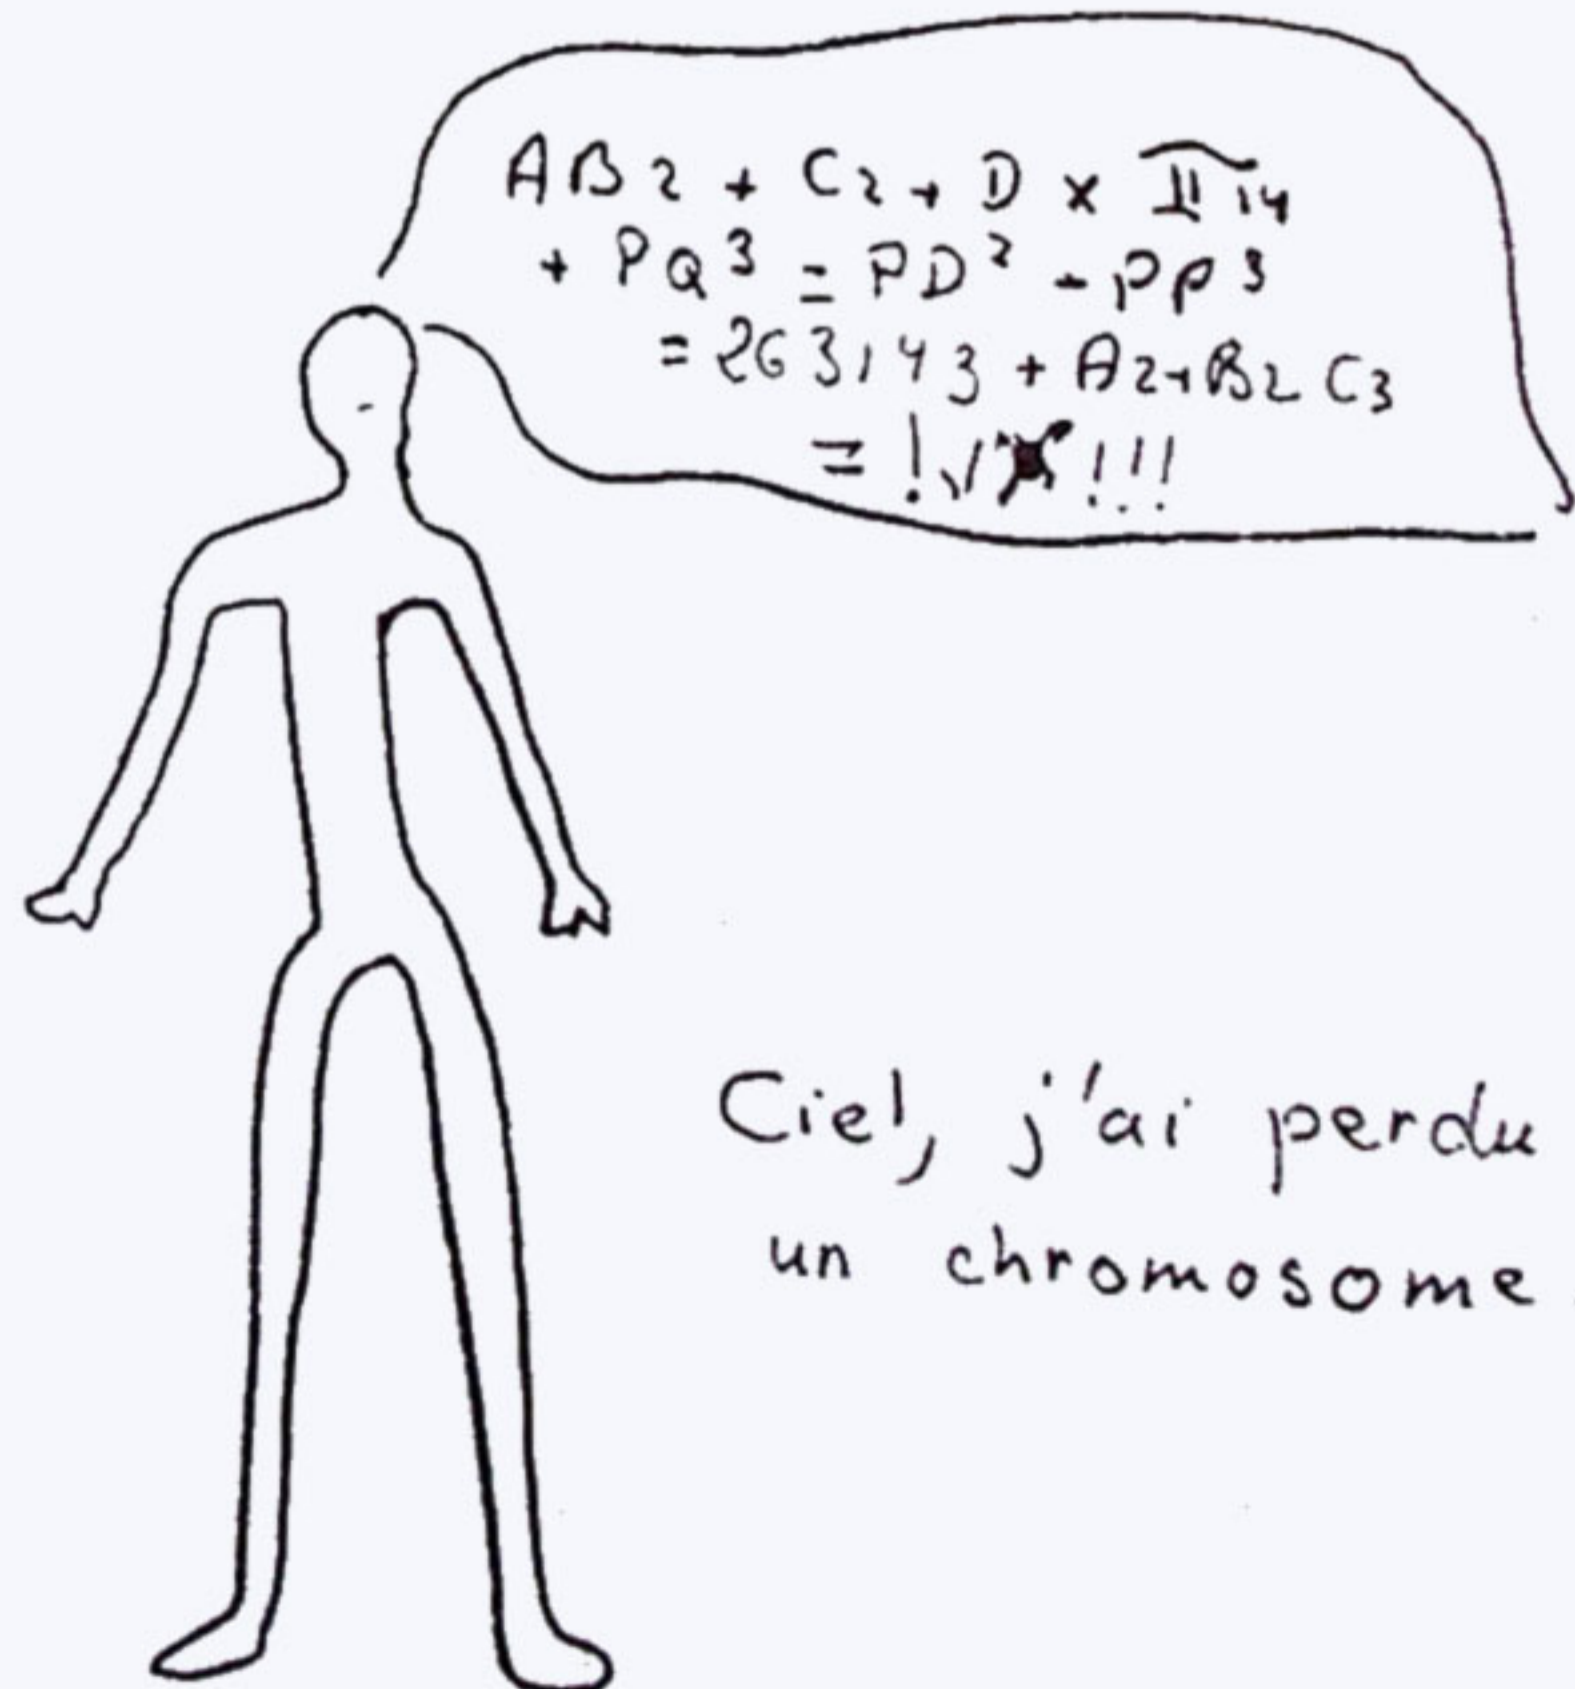 AB2 + C2 + D x II 14
+ PQ3 = PD2 - PP3
= 263143 + A2+B2 C3
= !√ !!!
Ciel, j'ai perdu
un chromosome.